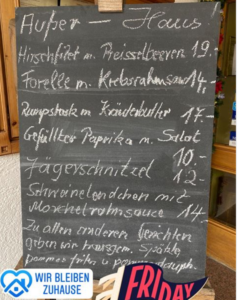 Außer - Haus
Hirschfilet m. Preisselbeeren 19.-
Forelle m. Krebsrahmsauce 14,-
Rumpsteak m. Kräuterbutter 17.-
Gefüllter Paprika m. Salat
10.-
Jägerschnitzel 12
Schweinelendchen mit
Morchelrahmsauce 14
Zu allen anderen Gerichten
geben wir
pommes frites u.
WIR BLEIBEN
ZUHAUSE
FRIDAY